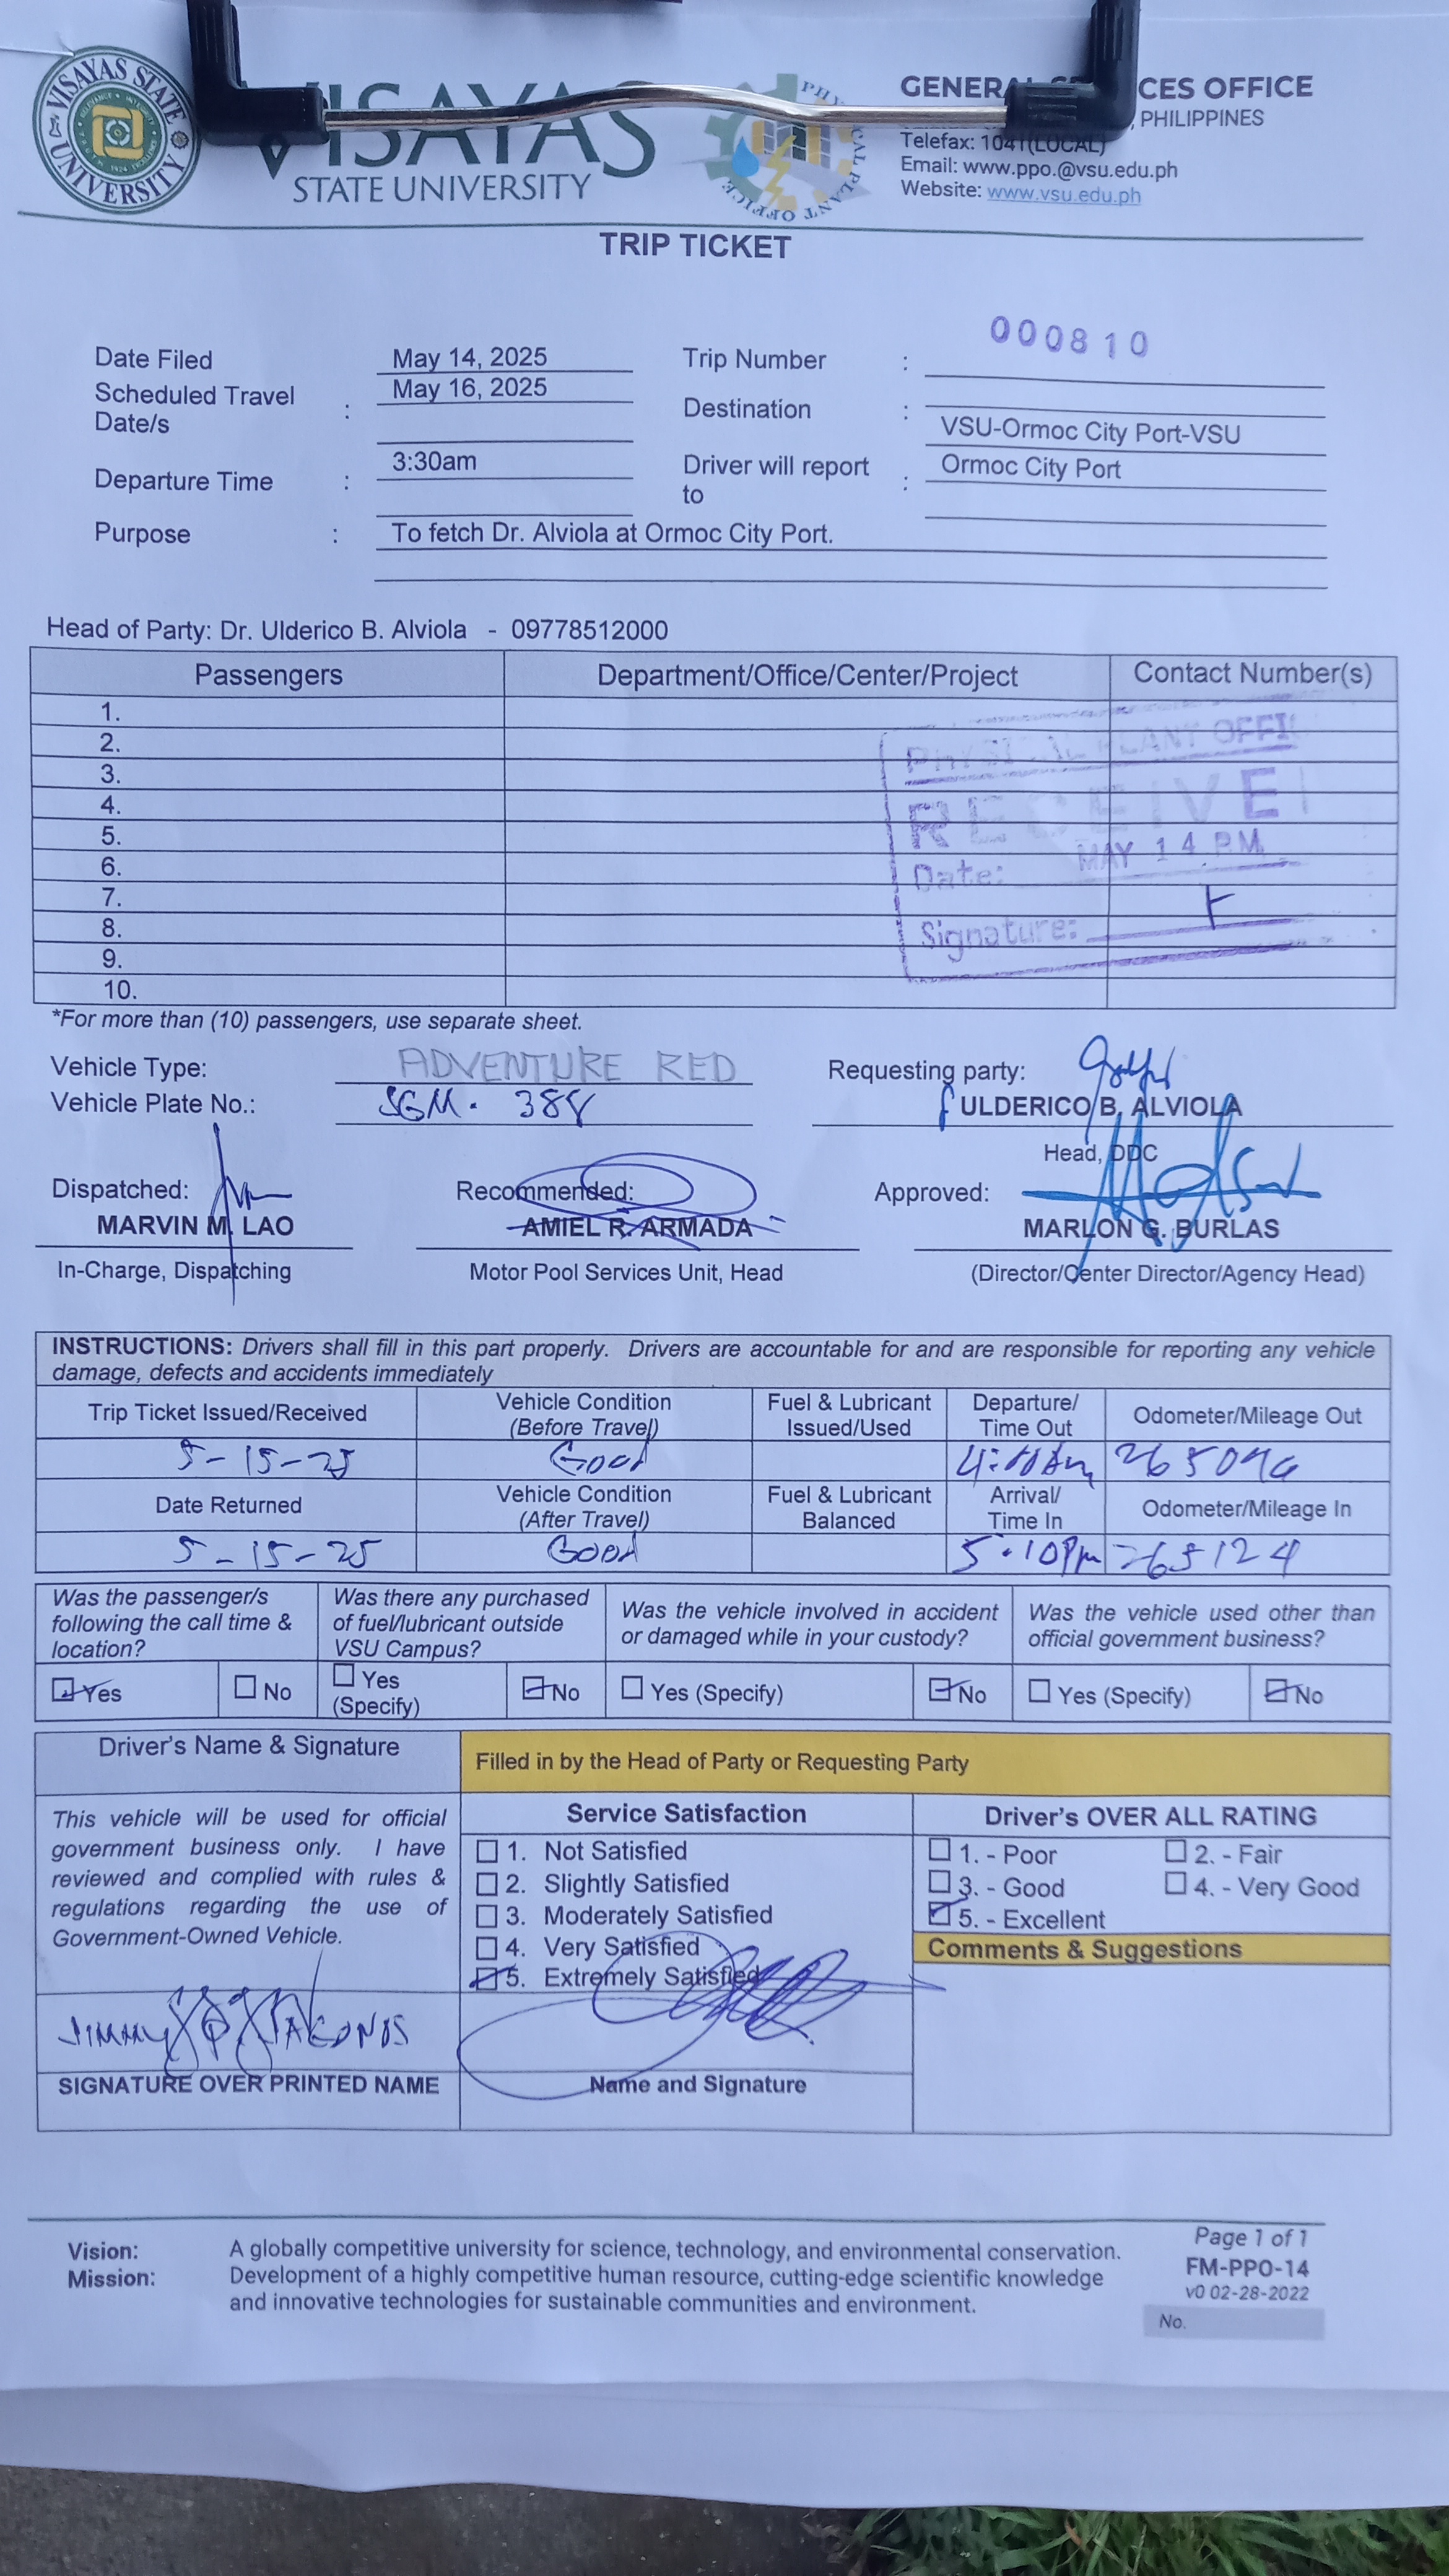 VISAYAS STATE UNIVERSITY
VISAYAS
STATE UNIVERSITY
GENERAL CES OFFICE
PHILIPPINES
Telefax: 1041(LOCAL)
Email: www.ppo.@vsu.edu.ph
Website: www.vsu.edu.ph
TRIP TICKET
000810
Date Filed May 14, 2025 Trip Number :
Scheduled Travel Date/s : May 16, 2025 Destination : VSU-Ormoc City Port-VSU
Departure Time : 3:30am Driver will report to : Ormoc City Port
Purpose : To fetch Dr. Alviola at Ormoc City Port.
Head of Party: Dr. Ulderico B. Alviola - 09778512000
Passengers Department/Office/Center/Project Contact Number(s)
1.
2.
3.
4.
5.
6.
7.
8.
9.
10.
PHYSICAL PLANT OFFI
RECEIVE
Date: MAY 14 P.M.
Signature:
*For more than (10) passengers, use separate sheet.
Vehicle Type: ADVENTURE RED Requesting party:
Vehicle Plate No.: SGM. 388 ULDERICO B. ALVIOLA
Head, DDC
Dispatched: Recommended: Approved:
MARVIN M. LAO AMIEL R. ARMADA MARLON G. BURLAS
In-Charge, Dispatching Motor Pool Services Unit, Head (Director/Center Director/Agency Head)
INSTRUCTIONS: Drivers shall fill in this part properly. Drivers are accountable for and are responsible for reporting any vehicle
damage, defects and accidents immediately
Trip Ticket Issued/Received Vehicle Condition (Before Travel) Fuel & Lubricant Issued/Used Departure/ Time Out Odometer/Mileage Out
5-15-25 Good
Date Returned Vehicle Condition (After Travel) Fuel & Lubricant Balanced Arrival/ Time In Odometer/Mileage In
5-15-25 Good 5:10pm 265124
Was the passenger/s following the call time & location? Was there any purchased of fuel/lubricant outside VSU Campus? Was the vehicle involved in accident or damaged while in your custody? Was the vehicle used other than official government business?
Yes No Yes (Specify) No Yes (Specify) No Yes (Specify) No
Driver's Name & Signature Filled in by the Head of Party or Requesting Party
This vehicle will be used for official
government business only. I have
reviewed and complied with rules &
regulations regarding the use of
Government-Owned Vehicle.
JIMMY
SIGNATURE OVER PRINTED NAME
Service Satisfaction
1. Not Satisfied
2. Slightly Satisfied
3. Moderately Satisfied
4. Very Satisfied
5. Extremely Satisfied
Name and Signature
Driver's OVER ALL RATING
1. - Poor 2. - Fair
3. - Good 4. - Very Good
5. - Excellent
Comments & Suggestions
Vision: A globally competitive university for science, technology, and environmental conservation.
Mission: Development of a highly competitive human resource, cutting-edge scientific knowledge
and innovative technologies for sustainable communities and environment.
Page 1 of 1
FM-PPO-14
v0 02-28-2022
No.